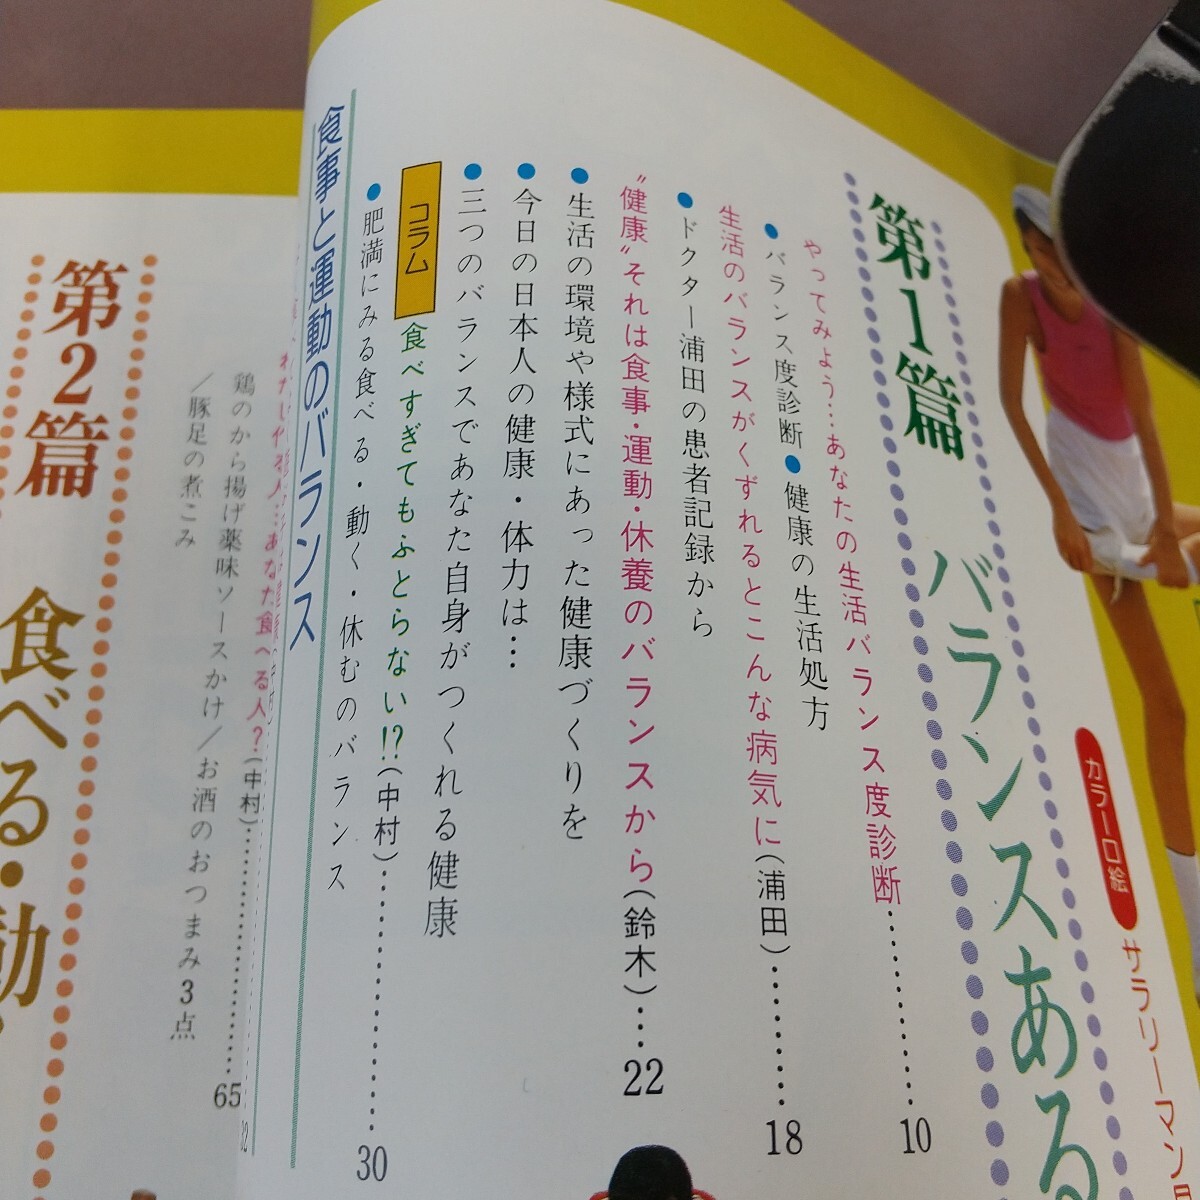 カラー口絵
サラリーマン
第1篇
バランスある
やってみよう…あなたの生活バランス度診断………10
●バランス度診断●健康の生活処方
生活のバランスがくずれるとこんな病気に(浦田)………18
●ドクター浦田の患者記録から
“健康”それは食事・運動・休養のバランスから(鈴木)…22
●生活の環境や様式にあった健康づくりを
●今日の日本人の健康・体力は…
●三つのバランスであなた自身がつくれる健康
コラム
食べすぎてもふとらない!?(中村)………30
●肥満にみる食べる・動く・休むのバランス
食事と運動のバランス
32
あなた食べる人?(中村)………65
鶏のから揚げ薬味ソースかけ/お酒のおつまみ3点
/豚足の煮こみ
第2篇
食べる・動